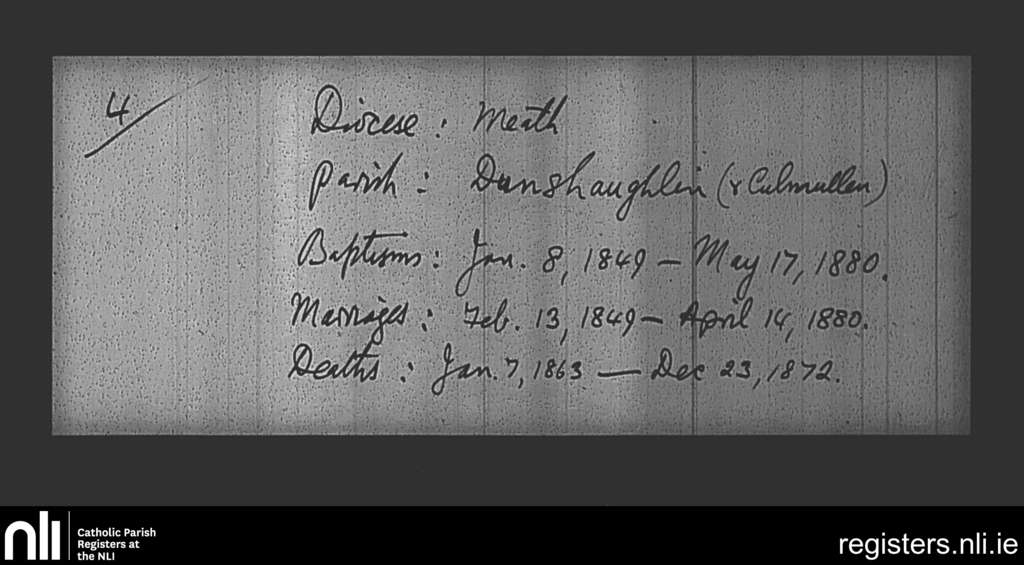 4/
Diocese: Meath
Parish: Dunshaughlin (& Culmullen)
Baptisms: Jan. 8, 1849 – May 17, 1880.
Marriages: Feb. 13, 1849 – April 14, 1880.
Deaths: Jan. 7, 1863 — Dec 23, 1872.
nli
Catholic Parish
Registers at
the NLI
registers.nli.ie